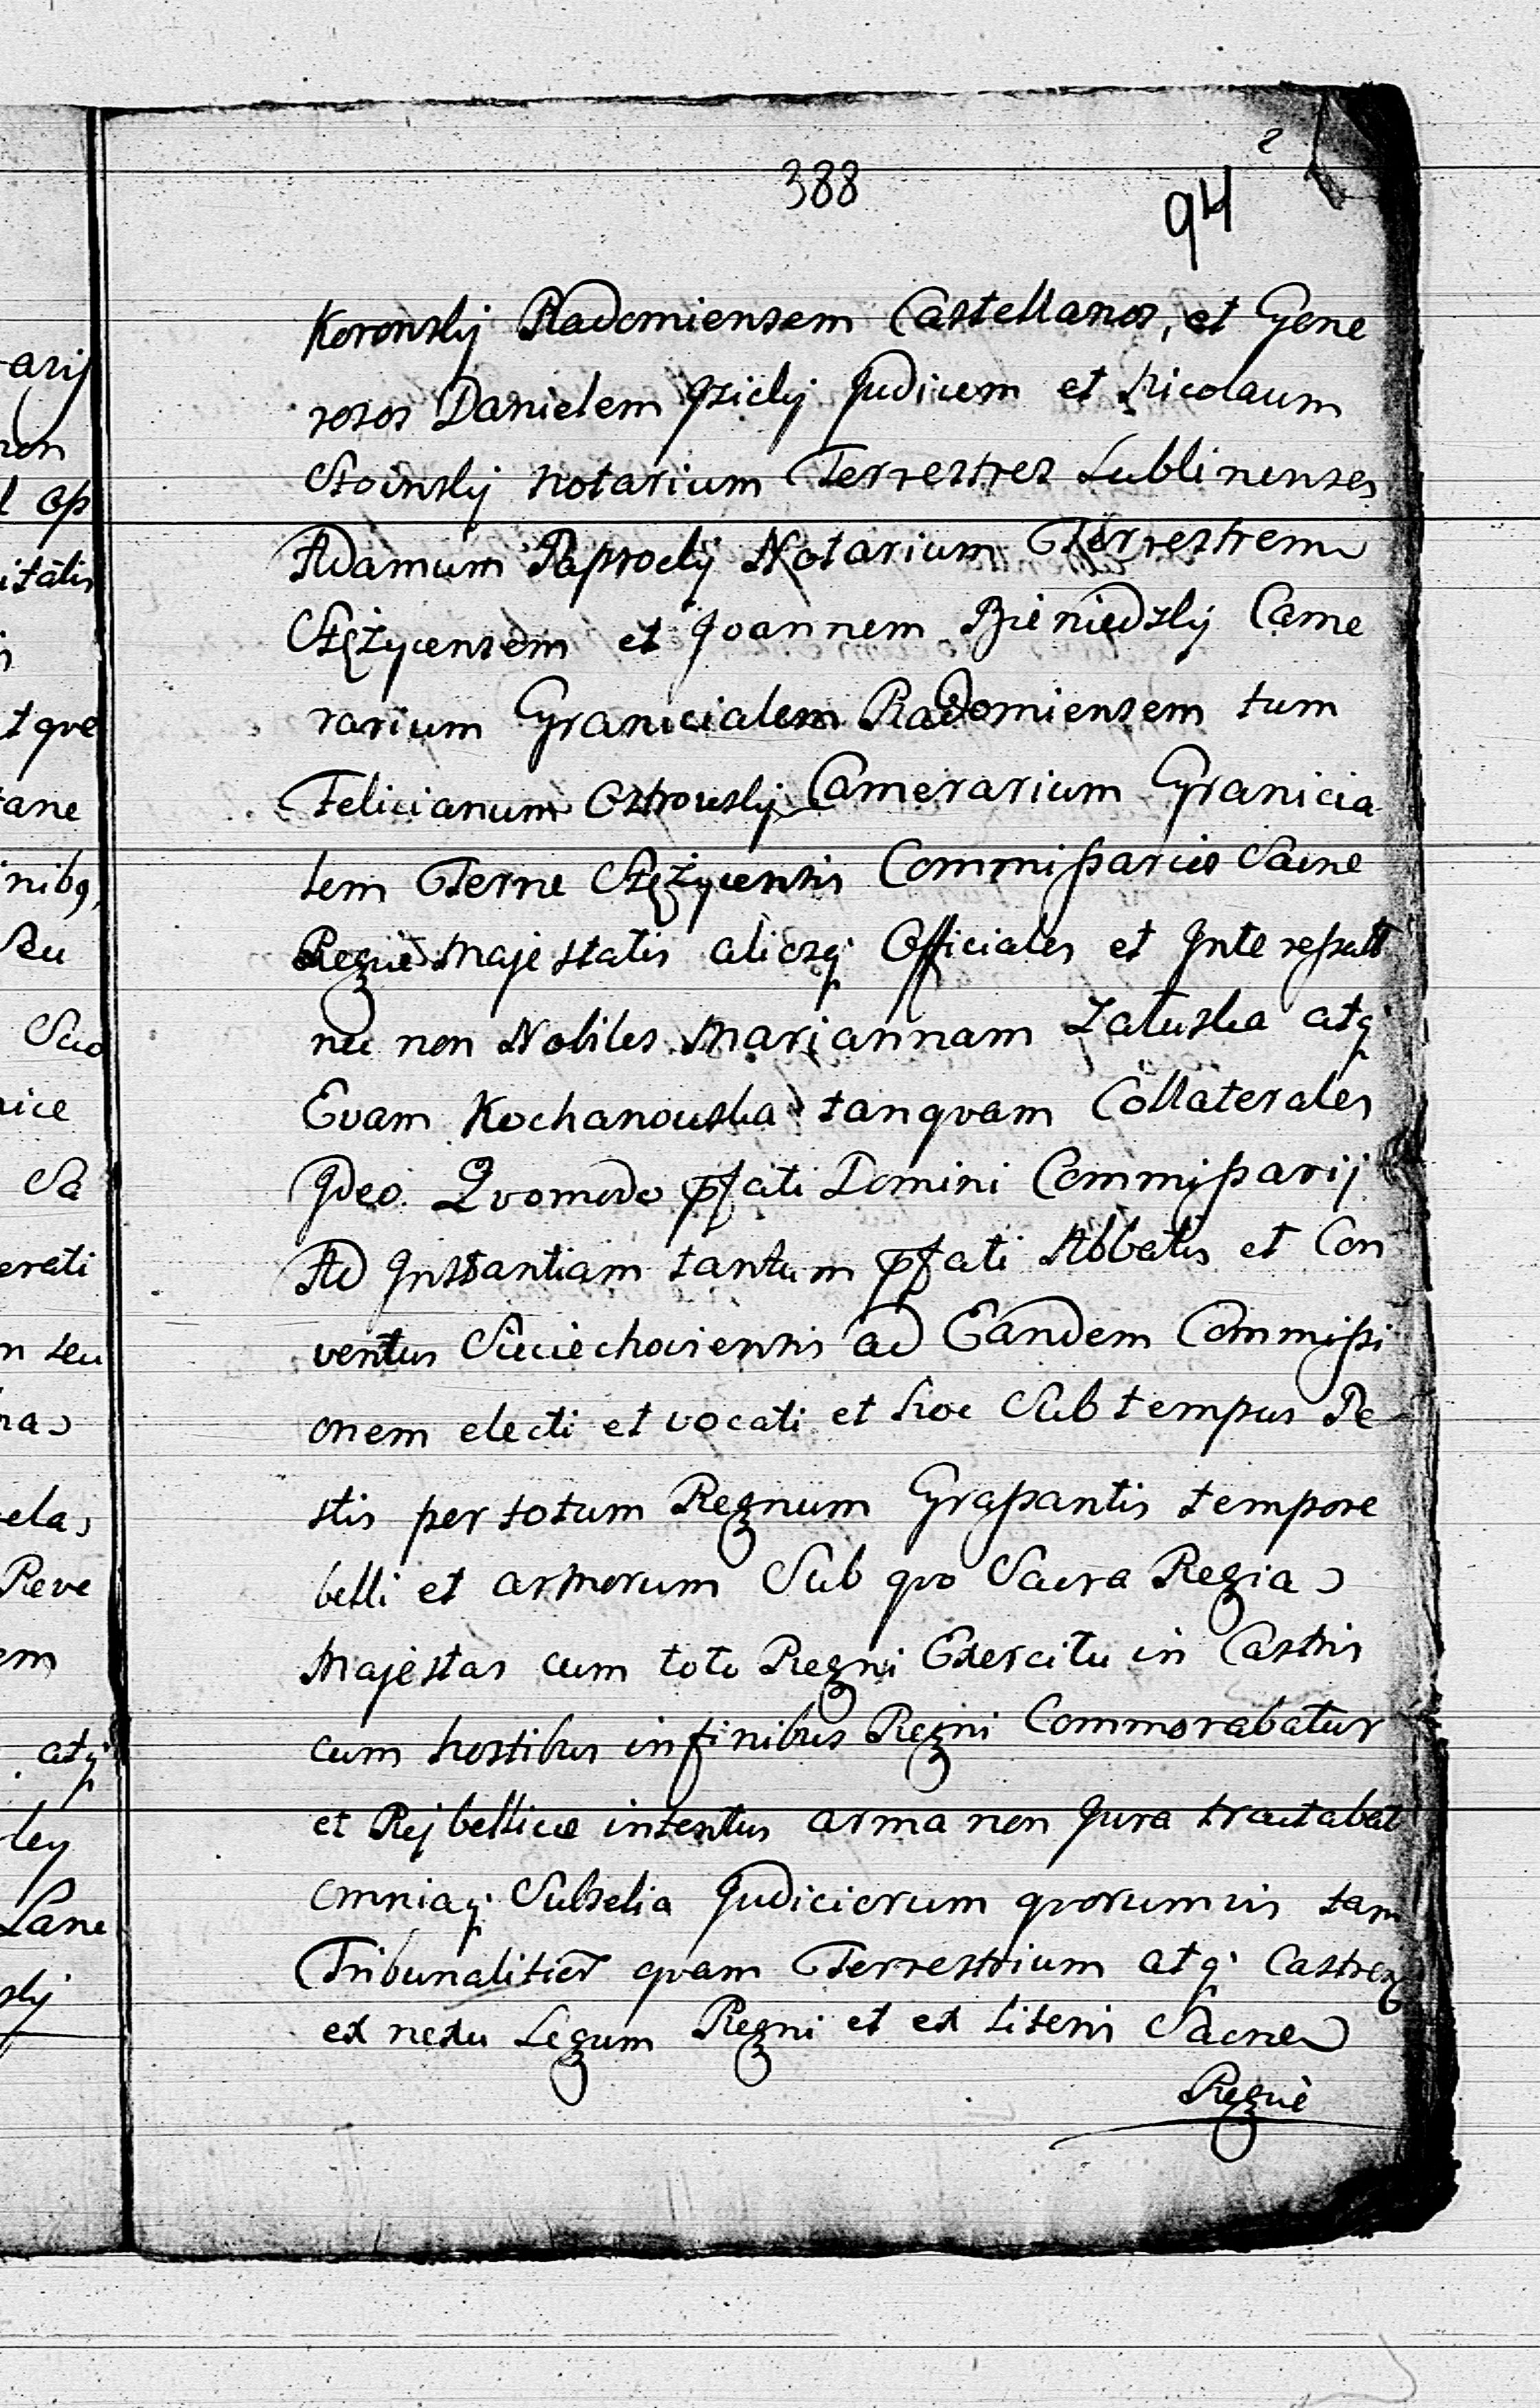 388
2
94
Koronskÿ Radomiensem Castellanos, et Gene
rosos Danielem Judicem et Nicolaum
Stoinskÿ Notarium Terrestres Lublinenses
Adamum Paprockÿ Notarium Terrestrem
Stężycensem et Joannem Bieniedzkÿ Came
rarium Granicialem Radomiensem tum
Felicianum Ostrowskÿ Camerarium Granicia
lem Terræ Stężycensis Commissarios Sacræ
Regiæ Majestatis aliosq Officiales et Interessatt
nec non Nobiles Mariannam Załuska atq
Evam Kochanowska tanqvam Collaterales
Ideo. Qvomodo pfati Domini Commissarij
Ad Instantiam tantum pfati Abbatis et Con
ventus Sieciechoviensis ad Eandem Commissi
onem electi et vocati et hoc Sub tempus Pe
stis per totum Regnum Grassantis tempore
belli et armorum Sub qvo Sacra Regia
Majestas cum toto Regni Exercitu in Castris
cum hostibus in finibus Regni Commorabatur
et Rej bellicæ intentus arma non Jura tractabat
Omniaq Subselia Judiciorum qvorumvis tam
Tribunalitior qvam Terrestrium atq Castren
ex nexu Legum Regni et ex Literis Sacræ
Regiæ
arij
non
l op
itatis
t qve
tane
inibq,
Seu
Sac
nice
Sa
erati
n seu
na
vela
Reve
em
atq
ley
Lane
skÿ